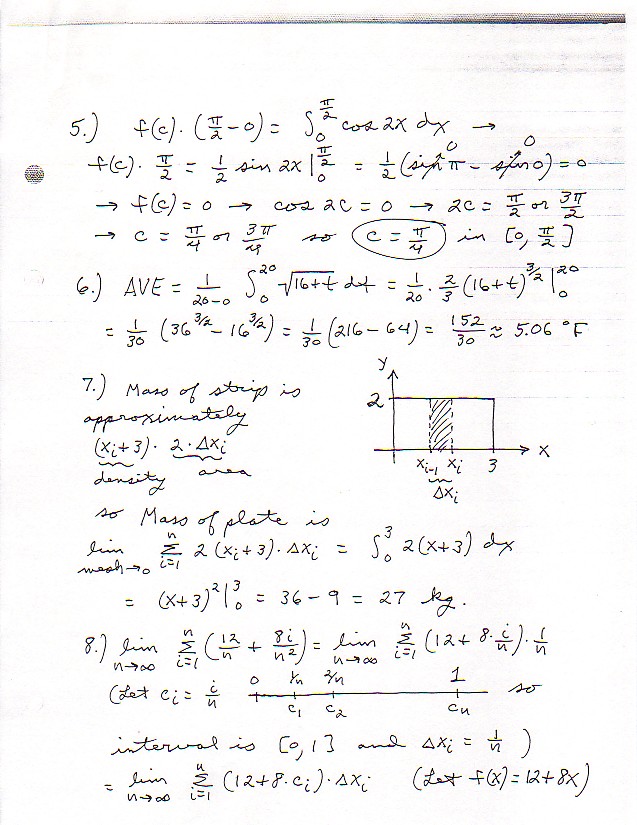 5.) f(c)·(π/2 − 0) = ∫₀^{π/2} cos 2x dx →
f(c)·π/2 = 1/2 sin 2x |₀^{π/2} = 1/2 (sin π − sin 0) = 0
→ f(c) = 0 → cos 2c = 0 → 2c = π/2 or 3π/2
→ c = π/4 or 3π/4 so c = π/4 in [0, π/2]
6.) AVE = 1/(20−0) ∫₀^{20} √(16+t) dt = 1/20 · 2/3 (16+t)^{3/2} |₀^{20}
= 1/30 (36^{3/2} − 16^{3/2}) = 1/30 (216 − 64) = 152/30 ≈ 5.06 °F
7.) Mass of strip is
approximately
(xᵢ+3) · 2·Δxᵢ
density area
y
2
x
xᵢ₋₁ xᵢ 3
Δxᵢ
so Mass of plate is
lim_{mesh→0} Σ_{i=1}^{n} 2(xᵢ+3)·Δxᵢ = ∫₀³ 2(x+3) dx
= (x+3)² |₀³ = 36 − 9 = 27 kg.
8.) lim_{n→∞} Σ_{i=1}^{n} (12/n + 8i/n²) = lim_{n→∞} Σ_{i=1}^{n} (12 + 8·i/n)·1/n
(Let cᵢ = i/n 0 1/n 2/n 1 so
c₁ c₂ cₙ
interval is [0,1] and Δxᵢ = 1/n )
= lim_{n→∞} Σ_{i=1}^{n} (12+8·cᵢ)·Δxᵢ (Let f(x) = 12+8x)